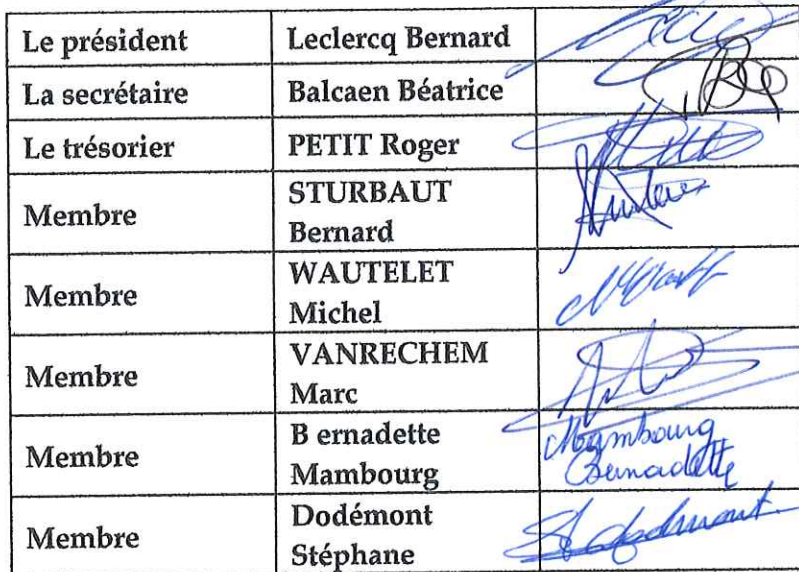 Le président Leclercq Bernard
La secrétaire Balcaen Béatrice
Le trésorier PETIT Roger
Membre STURBAUT
Bernard
Membre WAUTELET
Michel
Membre VANRECHEM
Marc
Membre B ernadette
Mambourg
Mambourg
Bernadette
Membre Dodémont
Stéphane